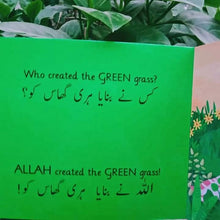 Who created the GREEN grass?
کس نے بنایا ہری گھاس کو؟
ALLAH created the GREEN grass!
اللہ نے بنایا ہری گھاس کو!